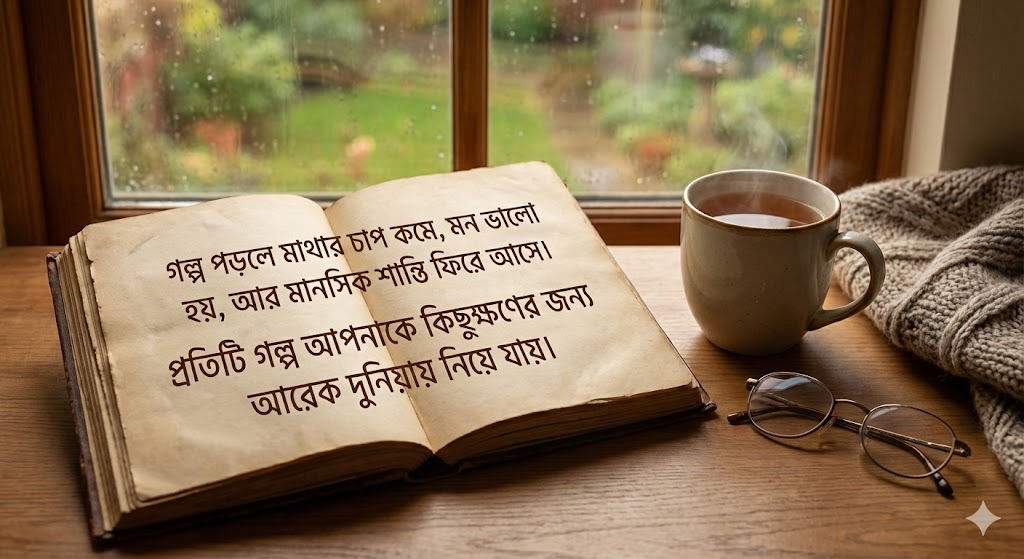 গল্প পড়লে মাথার চাপ কমে, মন ভালো
হয়, আর মানসিক শান্তি ফিরে আসে।
প্রতিটি গল্প আপনাকে কিছুক্ষণের জন্য
আরেক দুনিয়ায় নিয়ে যায়।